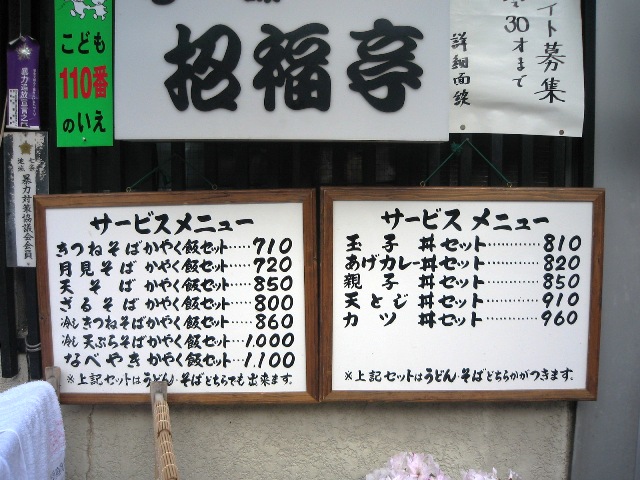 こども
110番
のいえ
招福亭
イト募集
30才まで
詳細面談
暴力追放宣言之
暴力対策協議会会員
サービスメニュー
きつねそばかやく飯セット……710
月見そばかやく飯セット……720
天そばかやく飯セット……850
ざるそばかやく飯セット……800
冷しきつねそばかやく飯セット…860
冷し天ぷらそばかやく飯セット…1.000
なべやきかやく飯セット…1.100
※上記セットはうどん・そばどちらでも出来ます。
サービスメニュー
玉子丼セット……810
あげカレー丼セット……820
親子丼セット……850
天とじ丼セット……910
カツ丼セット……960
※上記セットはうどん・そばどちらかがつきます。